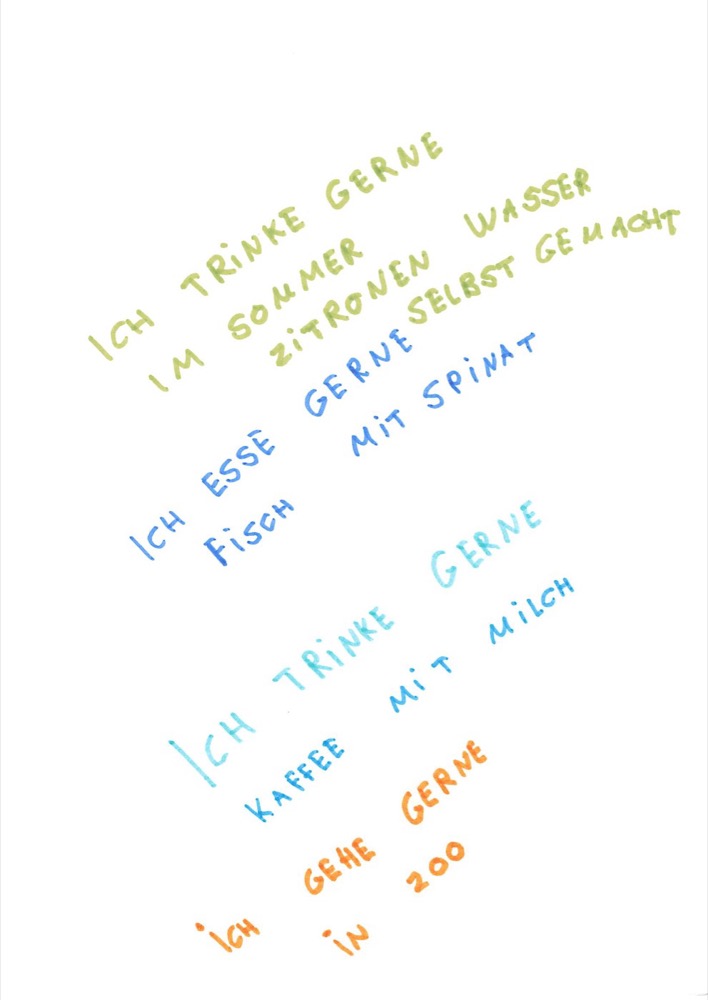 ICH TRiNKE GERNE
IM SOMMER
ZiTRONEN WASSER
SELBST GEMACHT
ICH ESSE GERNE
FiSCH MiT SPiNAT
ICH TRiNKE GERNE
KAFFEE MiT MiLCH
iCH GEHE GERNE
iN ZOO